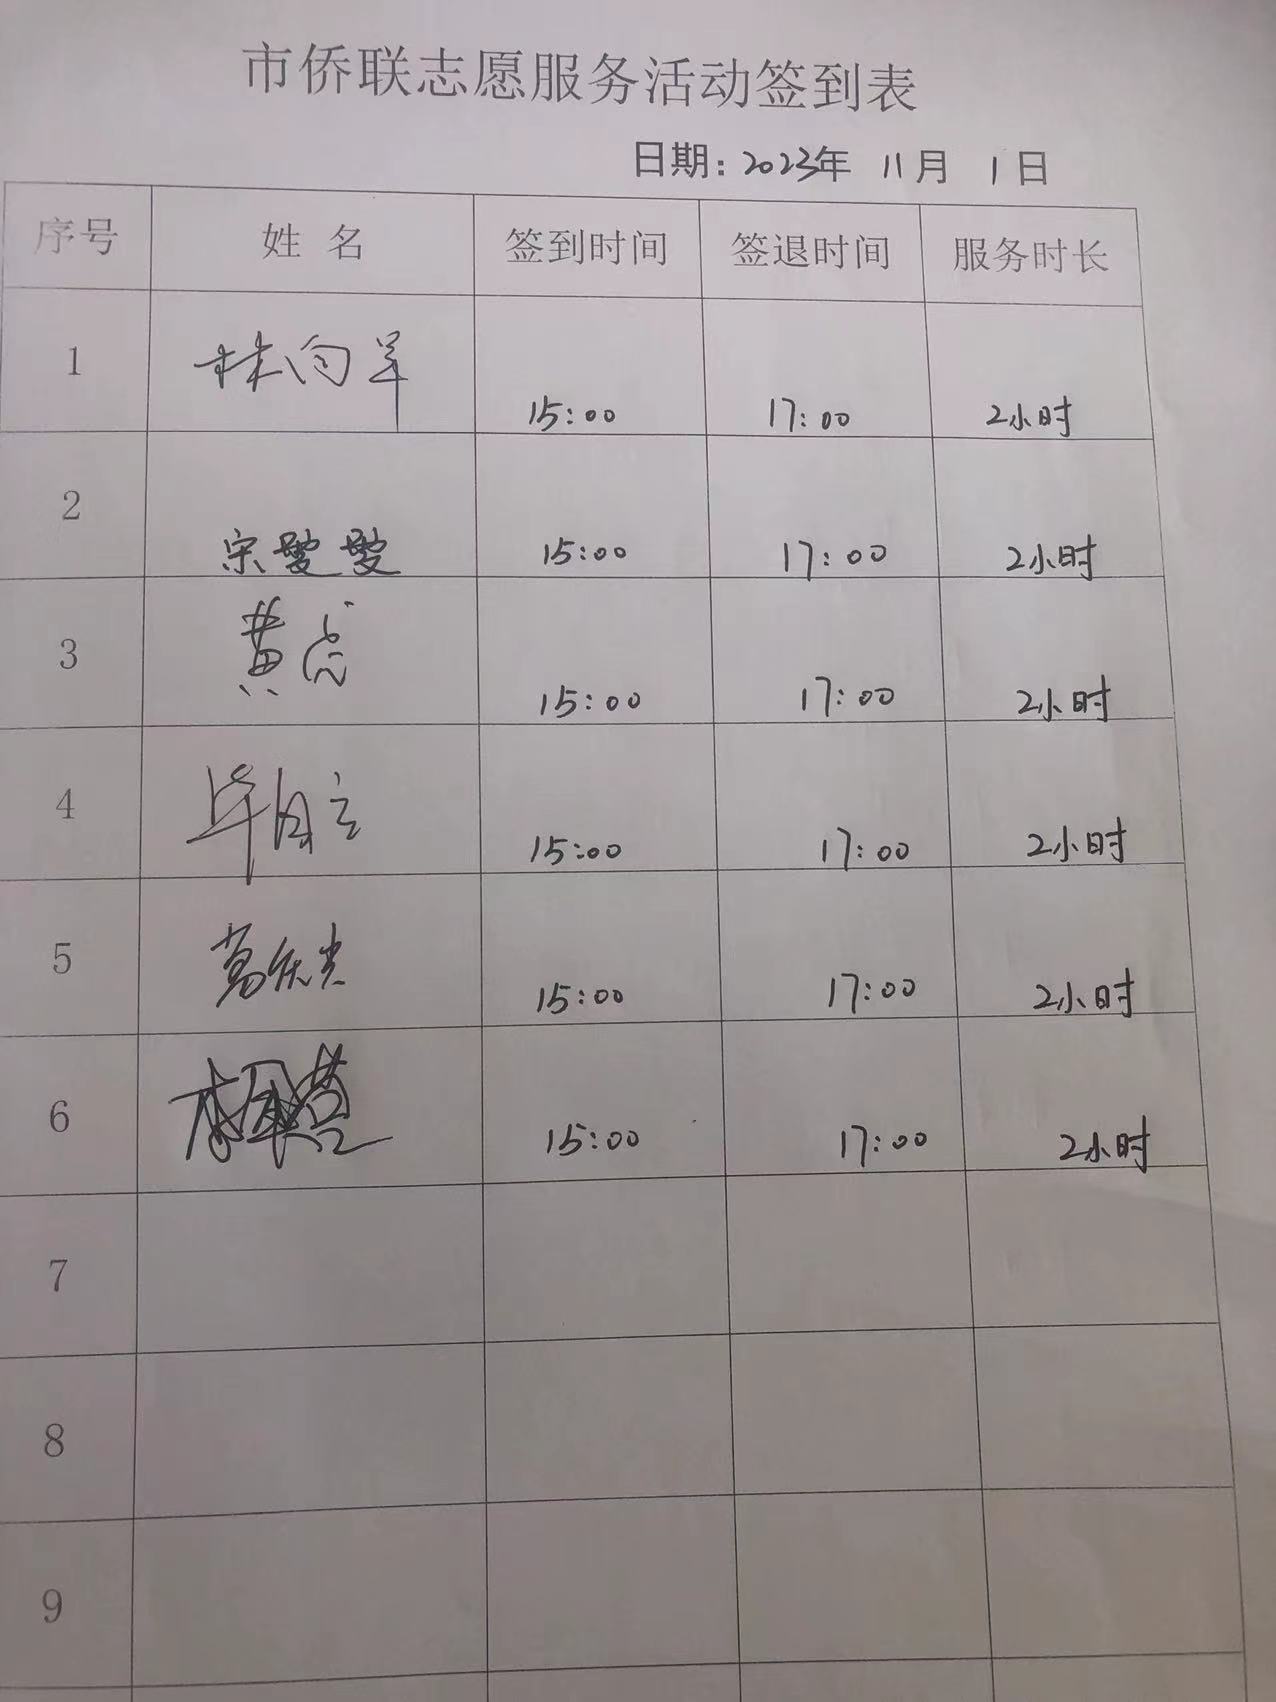 市侨联志愿服务活动签到表
日期：2023年 11月 1日
序号 姓 名 签到时间 签退时间 服务时长
1 林向羊 15:00 17:00 2小时
2 宋雯雯 15:00 17:00 2小时
3 黄 15:00 17:00 2小时
4 毕 15:00 17:00 2小时
5 葛 15:00 17:00 2小时
6 15:00 17:00 2小时
7
8
9